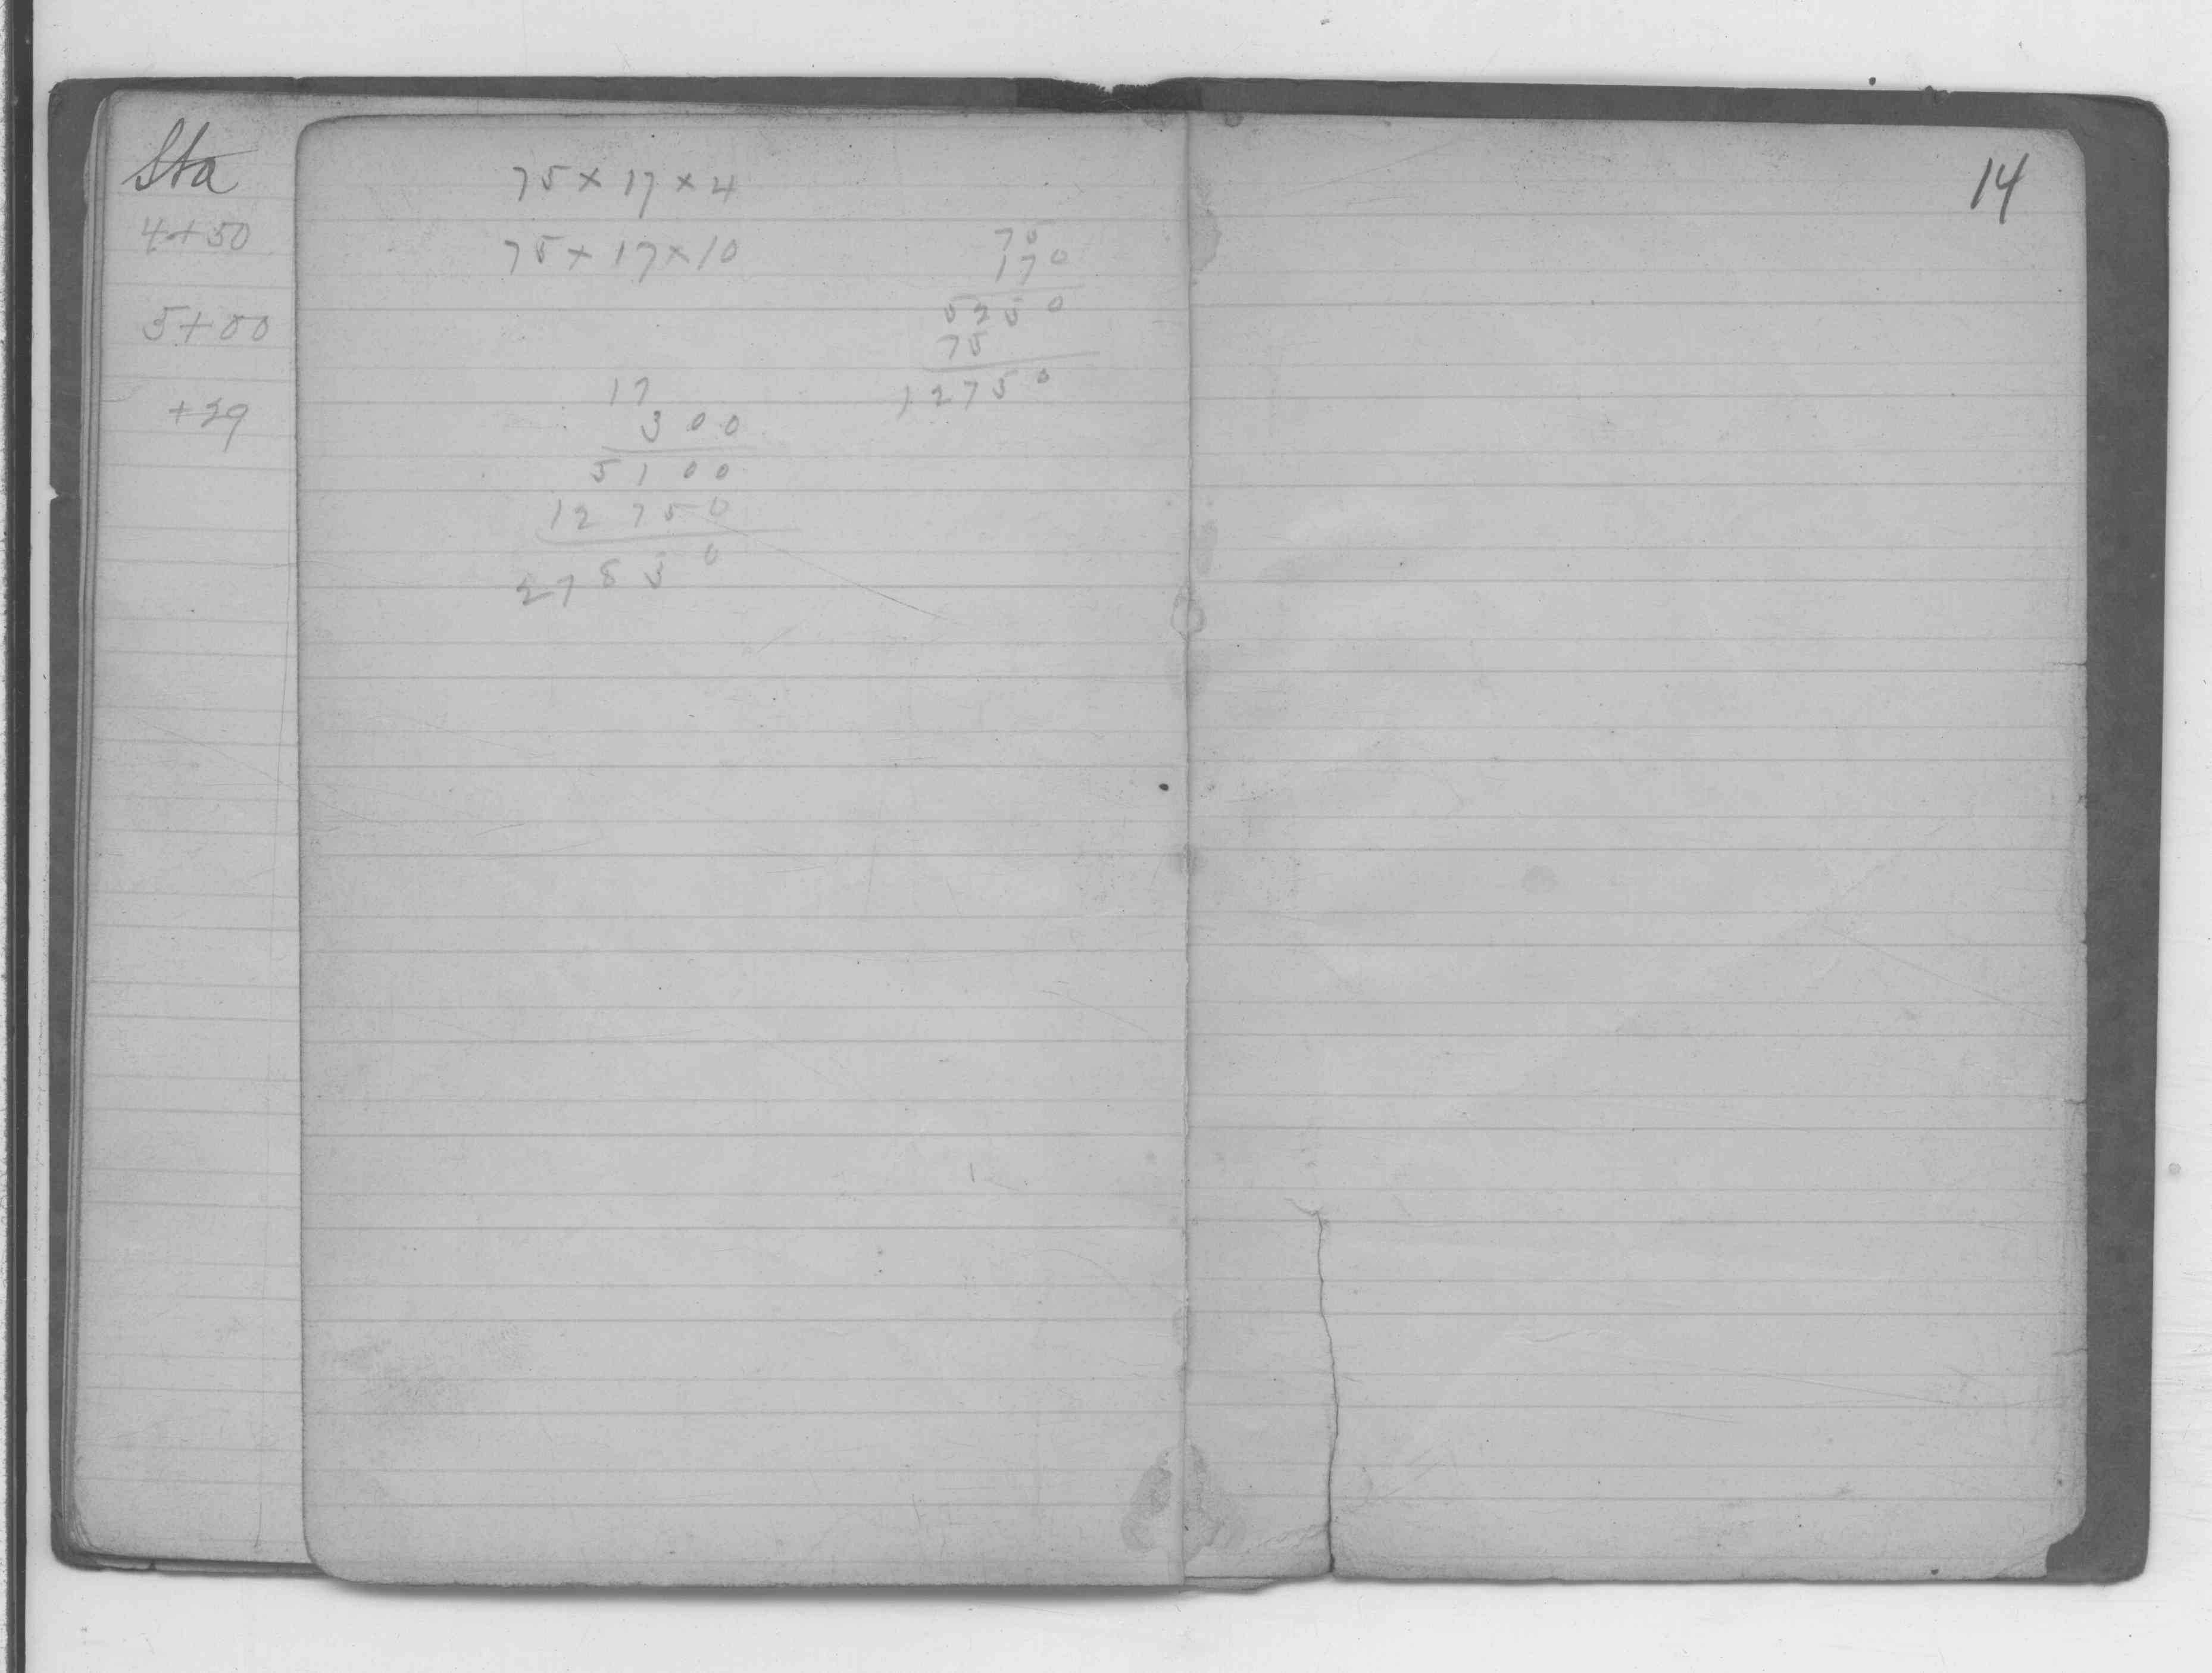 Sta
4+50
5+00
+29
75 × 17 × 4
75 × 17 × 10
75
170
5250
75
12750
17
300
5100
12750
27830
14